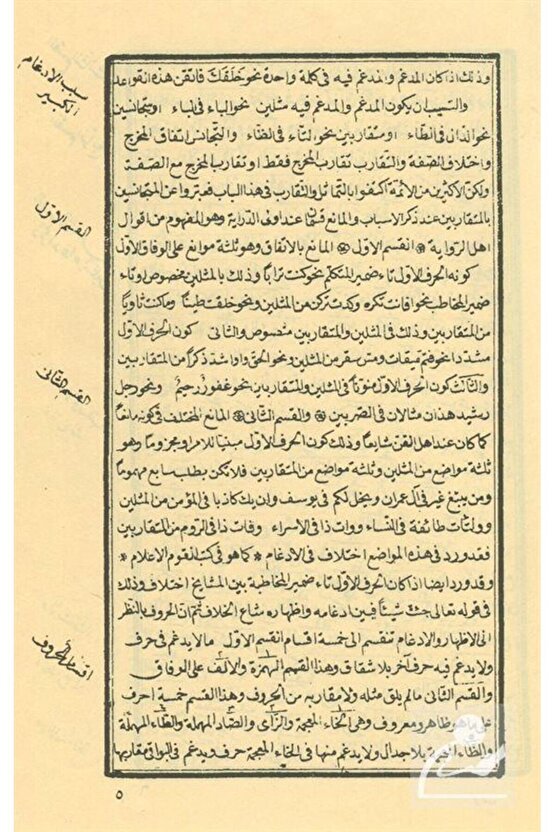 وذلك اذا كان المدغم والمدغم فيه في كلمة واحدة نحو خلقك فاتقن هذه القواعد
سبب الادغام الكبير
والسبب ان يكون المدغم والمدغم فيه مثلين نحو الباء في الباء او متجانسين
نحو الذال في الظاء او متقاربين نحو الثاء في الضاد والتجانس اتفاق المخرج
واختلاف الصفة والتقارب تقارب المخرج فقط او تقارب المخرج مع الصفة
ولكن الاكثرين من الائمة اكتفوا بالتماثل والتقارب في هذا الباب فعبروا عن المتجانسين
القسم الاول
بالمتقاربين عند ذكر الاسباب والمانع قسمان عند اولى الدراية وهو المفهوم من اقوال
اهل الرواية * القسم الاول * المانع بالاتفاق وهو ثلثة موانع على الوفاق الاول
كونه الحرف الاول تاء ضمير المتكلم نحو كنت ترابا وذلك بالمثلين مخصوص او تاء
ضمير المخاطب نحو افانت تكره وكدت تركن من المثلين ونحو خلقت طينا وما كنت ثاويا
من المتقاربين وذلك في المثلين والمتقاربين منصوص والثاني كون الحرف الاول
مشددا نحو فتم ميقات ومس سقر من المثلين ونحو الحق واو اشد ذكرا من المتقاربين
القسم الثاني
والثالث كون الحرف الاول منونا في المثلين والمتقاربين نحو غفور رحيم ونحو رجل
رشيد هذان مثالان في الضربين * والقسم الثاني * المانع المختلف في كونه مانعا
كما كان عند اهل الفن شايعا وذلك كون الحرف الاول مبنيا للامر او مجزوما وهو
ثلثة مواضع من المثلين وثلثة مواضع من المتقاربين فلا تكن بطلب سابع مهموما
ومن يبتغ غير في آل عمران ويخل لكم في يوسف وان يك كاذبا في المؤمن من المثلين
وولتأت طائفة في النساء ووآت ذا في الاسراء وفات ذا في الروم من المتقاربين
فقد ورد في هذه المواضع اختلاف في الادغام * كما هو في كتب القوم الاعلام *
وقد ورد ايضا اذا كان الحرف الاول تاء ضمير المخاطبة بين المشايخ اختلاف وذلك
في قوله تعالى جئت شيئا فبين ادغامه واظهاره شاع الخلاف ثم ان الحروف بالنظر
اقسام الحروف
الى الاظهار والادغام تنقسم الى خمسة اقسام القسم الاول ما لا يدغم في حرف
ولا يدغم فيه حرف آخر بلا شقاق وهذا القسم الهمزة والالف على الوفاق
والقسم الثاني ما لم يلق مثله ولا مقاربه من الحروف وهذا القسم خمسة احرف
على ما هو ظاهر ومعروف وهي الخاء المعجمة والزاى والصاد المهملة والطاء المهملة
والظاء المعجمة بلا جدال ولا يدغم منها في الخاء المعجمة حرف ويدغم في البواقي مقاربها
٥